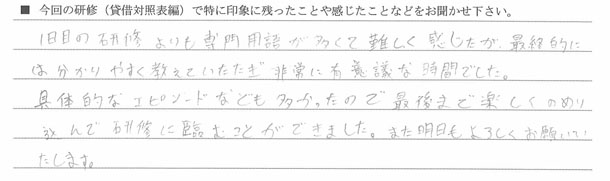 ■ 今回の研修（貸借対照表編）で特に印象に残ったことや感じたことなどをお聞かせ下さい。
1日目の研修よりも専門用語が多くて難しく感じたが、最終的に
は分かりやすく教えていただき非常に有意議な時間でした。
具体的なエピソードなども多かったので最後まで楽しくのめり
込んで研修に臨むことができました。また明日もよろしくお願いい
たします。